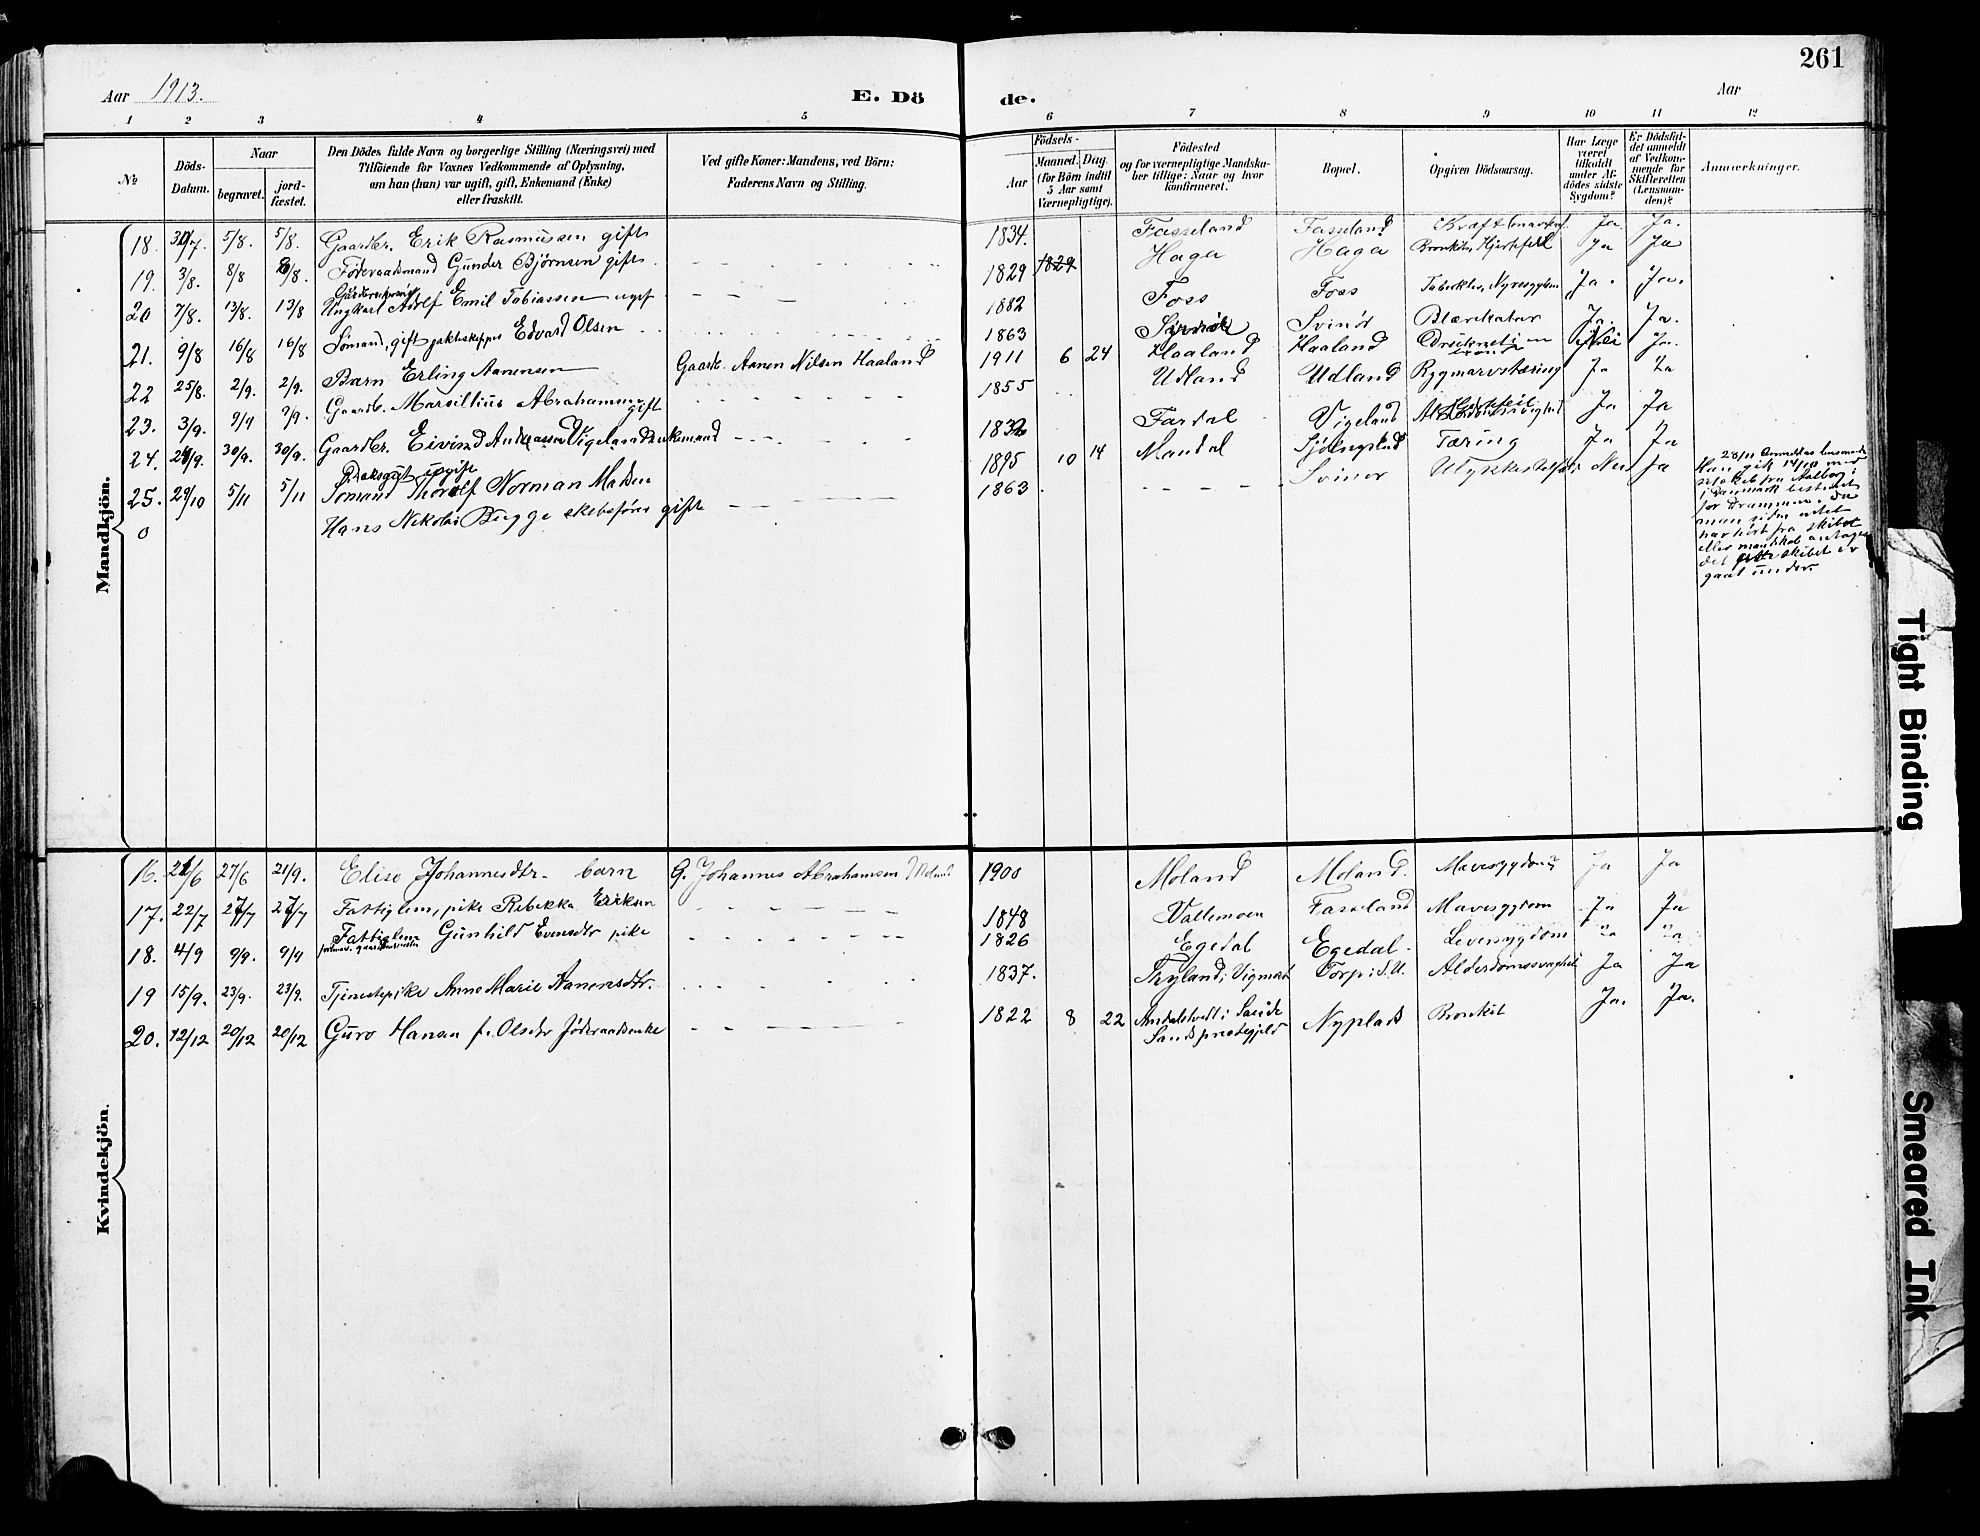 261
Aar 1913.
E. Dö
de.
Aar
1 2 3 4 5 6 7 8 9 10 11 12
No
Döds-Datum.
Naar
begravet.
jord-fæstet.
Den Dödes fulde Navn og borgerlige Stilling (Næringsvei) med
Tilföiende for Voxnes Vedkommende af Oplysning,
om han (hun) var ugift, gift, Enkemand (Enke)
eller fraskilt.
Ved gifte Koner: Mandens, ved Börn:
Faderens Navn og Stilling.
Födsels-
Aar
Maaned. Dag.
(for Börn indtil
5 Aar samt
Værnepligtige).
Födested
og for værnepligtige Mandska-
ber tillige: Naar og hvor
konfirmeret.
Bopæl.
Opgiven Dödsaarsag.
Har Læge
været
tilkaldt
under Af-
dödes sidste
Sygdom?
Er Dödsfal-
det anmeldt
af Vedkom-
mende for
Skifteretten
(Lensman-
den)?
Anmærkninger.
Mandkjön.
18. 5/8. 5/8. Gaardbr. Erik Rasmussen gift 1834. Fasseland Fasseland Ja Ja.
19. 3/8. 8/8 8/8. Föderaadsmand Gunder Björnsen gift 1829 1829 Haga Haga Bronkit, Hjertefeil Ja Ja
20 7/8. 13/8. 13/8 Ungkarl Adolf Emil Tobiassen ugift 1882 Foss Foss Ja. Ja.
21. 9/8 16/8 16/8 Sömand, gift jakteskipper Edvard Olsen 1863 Svinör Svinör Blærekatar Ja. Ja.
22 25/8. 2/9. 2/9. Barn Erling Aanensen Gaardb. Aanen Nilsen Haaland 1911 6 24 Haaland Haaland Druknet i en Nei Ja.
23. 3/9. 9/9 9/9. Gaardb. Marsilius Abrahamsen gift 1855 Udland Udland Rygmarvstæring Ja Ja
24. 30/9. 30/9. Gaardbr. Eivind Andreassen Vigeland enkemand 1832 Fardal Vigeland Ja Ja
25. 29/10 5/11 5/11 Sömand Thorolf Norman Madsen 1895 10 14 Mandal Tæring Ja Ja
0 Hans Nikolai Bugge skibsförer gift 1863 Svinör Nei Ja
28/11 Anmeldes lensmand
Han gik 14/10 med
sit skib fra Aalborg
i Danmark bestemt
for Drammen. Da
man siden intet
har hört fra skibet
eller mandskab antages
det at skibet er
gaat under.
Kvindekjön.
16. 21/6 27/6 21/9. Elise Johannesdtr. barn G. Johannes Abrahamsen Moland 1900 Moland Moland. Mavesygdom Ja Ja
17. 22/7 27/7 27/7 Fattiglem, pike Rebekka Eriksen 1848 Vallemoen Fasseland Mavesygdom Ja Ja
18. 4/9 9/9. 9/9 Fattiglem Gunhild Evensdtr pike 1826 Egedal Egedal. Leversygdom Ja Ja
19 15/9. 23/9. 23/9. Tjenestepike Anne Marie Aanensdtr. 1837. Tryland i Vigmost. Torp i S.U. Alderdomssvaghed Ja Ja
20. 12/12 20/12 20/12 Guro Hansen f. Olsdtr Föderaadsenke 1822 8 22 Sands prestegjeld Nyplads Bronkit Ja. Ja.
Tight Binding
Smeared Ink